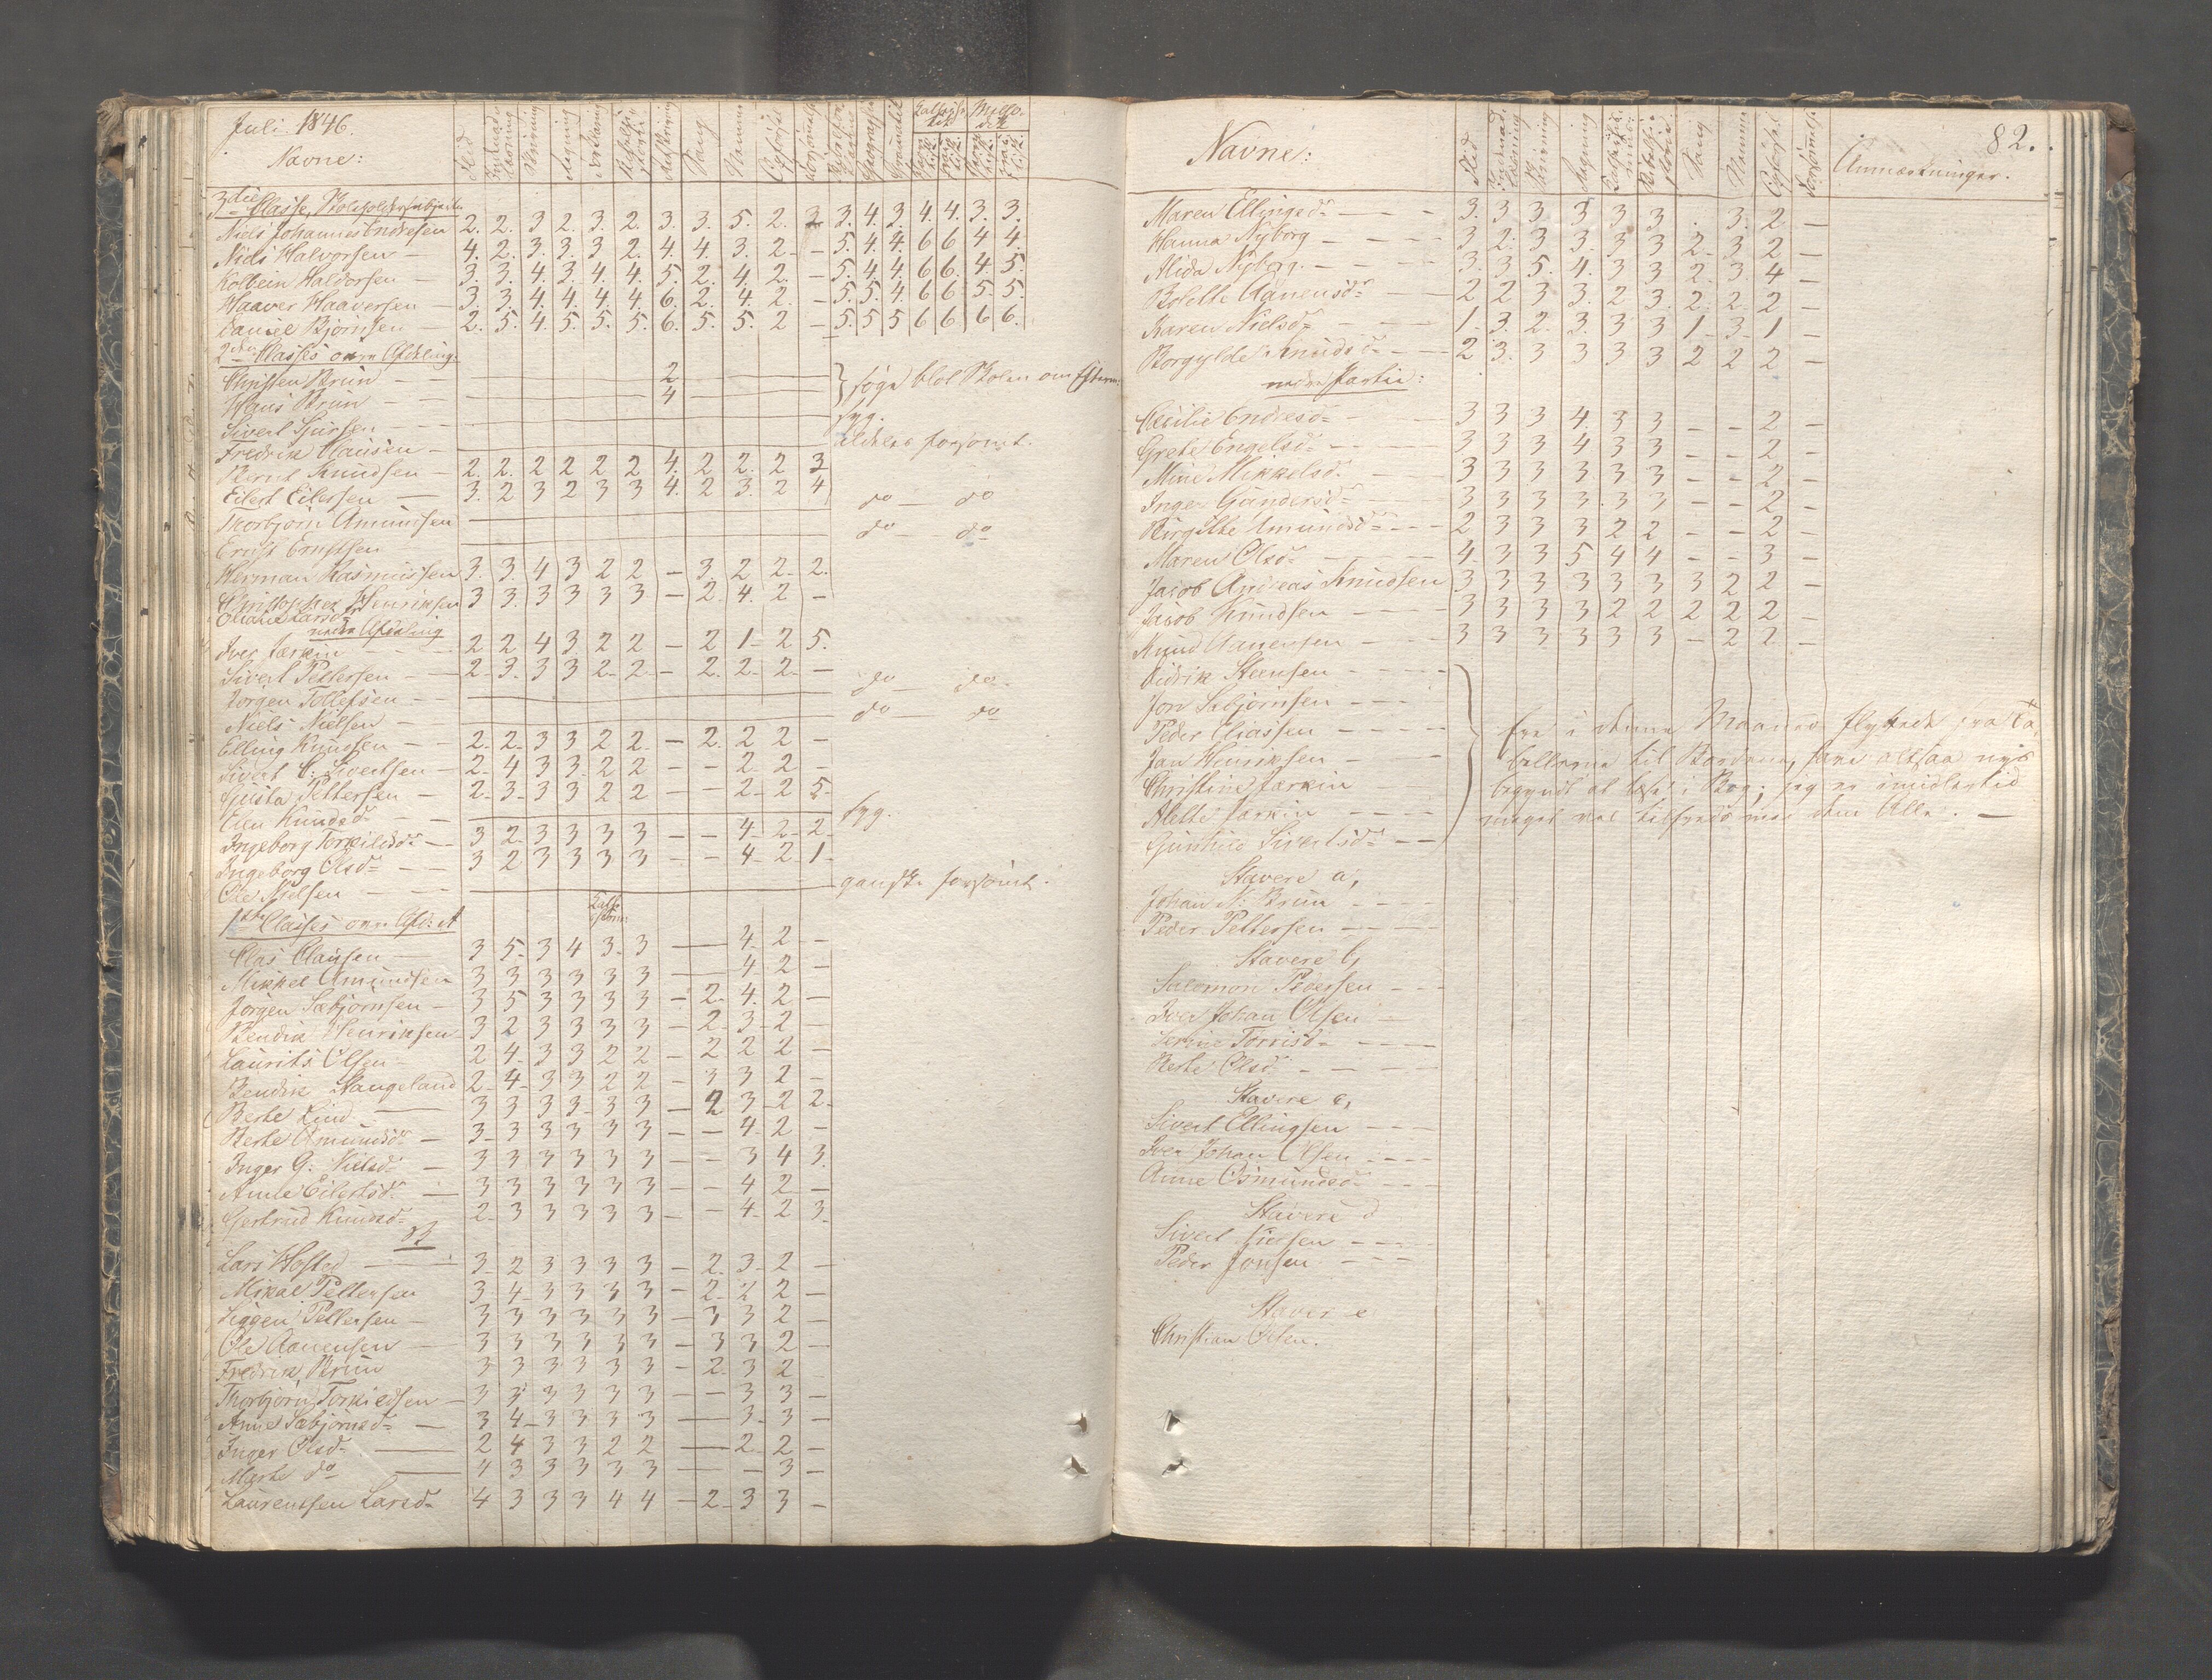 Juli 1846.
Navne:
Flid
Skrivning
Regning
Sang
Opførsel
3die Classe,
Niels Johannes Endresen 2. 2. 3 2. 3. 2. 3. 3. 5. 2. 3. 4. 3. 4. 4. 3. 3.
Niels Halvorsen 4. 2. 3. 3. 3 2. 4. 4. 3. 2. - 5. 4. 4. 6 6 4 4.
Kolbein Haldorsen 3. 3. 4. 3. 4. 4. 5. 2. 4. 2. - 5. 4. 4. 6 6. 4. 5.
Haaver Haaversen 3. 3. 4. 4. 4. 4. 6. 2. 4. 2. - 5. 5. 4. 6 6 5. 5.
Daniel Bjørnsen 2. 5. 4. 5. 5. 5. 6. 5. 5. 2 - 5. 5 5 6 6 6 6.
2den Classes øvre Afdeling.
Christen Brun 2
Hans Brun 4
Sivert Sjursen syg.
Fredrik Clausen aldeles forsømt.
Bernt Knudsen 2. 2. 2 2 2 2 4. 2 2. 2 3
Eilert Eilertsen 3. 2 3 2 3 3 4. 2 3. 2 4
Thorbjørn Amundsen do do
Ernst Ernstsen do do
Herman Rasmussen 3. 3. 4 3 2 2 - 3. 2 2. 2.
Christopher Henriksen 3 3. 3 3 3 3. - 2. 4. 2 -
Oliane Larsd.
nedre Afdeling
Iver Larkin 2 2 4 3. 2 2 - 2 1 - 2 5.
Sivert Pettersen 2. 3. 3 3 2. 2. - 2. 2. 2. -
Jørgen Tollefsen do do
Niels Nielsen do do
Elling Knudsen 2. 2. 3 3 2 2. - 2. 2 2 -
Sivert C. Sivertsen 2. 4 3 3. 2 2 - - 2. 2 -
Gusta Pettersen 2. 3. 3 3 2 2 - - 2. 2 5.
Elen Knudsd. syg.
Ingeborg Torkildsd. 3 2. 3 3 3 3 - - 4. 2. 2.
Ingeborg Olsd. 3 2 3 3 3 3 - - 4. 2. 1.
Ole Nielsen ganske forsømt.
1ste Classes øvre Afd: A
Clas Clausen 3 5. 3 4 3. 3 4. 2 -
Mikkel Amundsen 3 3 3 3 3 3 4. 2 -
Jørgen Sæbjørnsen 3 5 3 3 3 3 - 2. 4. 2 -
Bendik Henriksen 3 2 3 3 3 3 - 2. 3. 2 -
Laurits Olsen 2 4. 3 3 2 2 - 2 2 2 -
Bendik Stangeland 2. 4. 3 3 2 2 - 3 3 2 -
Berte Lind 3 3 3 3. 3 3 - 2 3 - 2 2.
Berte Amundsd. 3. 3 3 3 3 3 - - 4. 2 -
Inger G. Nielsd. 3 3 3 3 3 3 - - 3 4 3.
Anne Eilertsd. 3 3 3 3 3 3 - - 4 2 -
Gertrud Knudsd. 2. 3 3 3 3 3 - - 4. 2 3.
B
Lars Hofsted 3. 2 3 3 3 3 - 2. 3. 2 -
Mikal Pettersen 3. 4. 3 3 3 3 - 2. 2 2 -
Siggen Pettersen 3 3 3 3 3 3 - 3 3 2 -
Ole Aanensen 3 3 3 3 3 3 - 3 3 2 -
Fredrik Brun 3 3 3 3 3 3 - 2. 3 2
Thorbjørn Torkildsen 3 3 3 3 3 3 - - 3 3 -
Anne Sæbjørnsd. 3 4. 3 3 3 3 3. 3 -
Inger Olsd. 2 4 3 3 2 2 2. 2 -
Marte do 4 3 3 3 3 3 - 3 -
Laurentsen Larsd. 4 3 3 3 4 4 - 2. 3 3 -
82.
Navne:
Flid
Skrivning
Regning
Sang
Opførsel
Anmærkninger.
Maren Ellingsd. 3. 3 3 3 3 3 . 3. 2 -
Hanna Nyborg 3 2. 3 3. 3 3 2. 3 2 -
Alida Nyborg 3. 3 5. 4. 3 3 2. 3. 4 -
Bolette Aanensd. 2 2 3 3. 2 3. 2. 2. 2 -
Karen Nielsd. 1. 3. 2. 3. 3 3 1. 3. 1 -
Borgylde Knudsd. 2 3. 3 3 3 3 2 2 2 -
nedre Partie:
Cæcilie Endresd. 3 3 3 4. 3 3 - - 2 -
Grete Engelsd. 3 3 3 4 3 3 - - 2 -
Mine Mikkelsd. 3 3 3 3 3 3 - - 2. -
Inger Gundersd. 3 3 3 3. 3 3 - - 2 -
Birgitte Amundsd. 2 3 3 3 2 2 - - 2 -
Maren Olsd. 4. 3 3 5 4 4 - - 3 -
Jacob Andreas Knudsen 3 3 3 3 3 3 3 2 2 -
Jacob Knudsen 3 3 3 3 2 2 2 2 2 -
Knud Aanensen 3 3 3 3 3 3 - 2 2 -
Didrik Steensen
Jon Sebjørnsen
Peder Eliassen
Jan Henriksen
Christine Larkin
Alette Larkin
Gunhild Sivertsd.
Ere i denne Maaned flyttede fra Ta
bellerne til Bordene, have altsaa nys
begyndt at læse i Bog; jeg er imidlertid
meget vel tilfreds med dem Alle. —
Stavere a,
Johan N. Brun
Peder Pettersen
Stavere b,
Salomon Pedersen
Iver Johan Olsen
Serine Torrisd.
Berte Olsd.
Stavere c,
Sivert Ellingsen
Iver Johan Olsen
Anne Osmundsd.
Stavere d
Sivert
Peder Jonsen
Staver e
Christian Olsen.